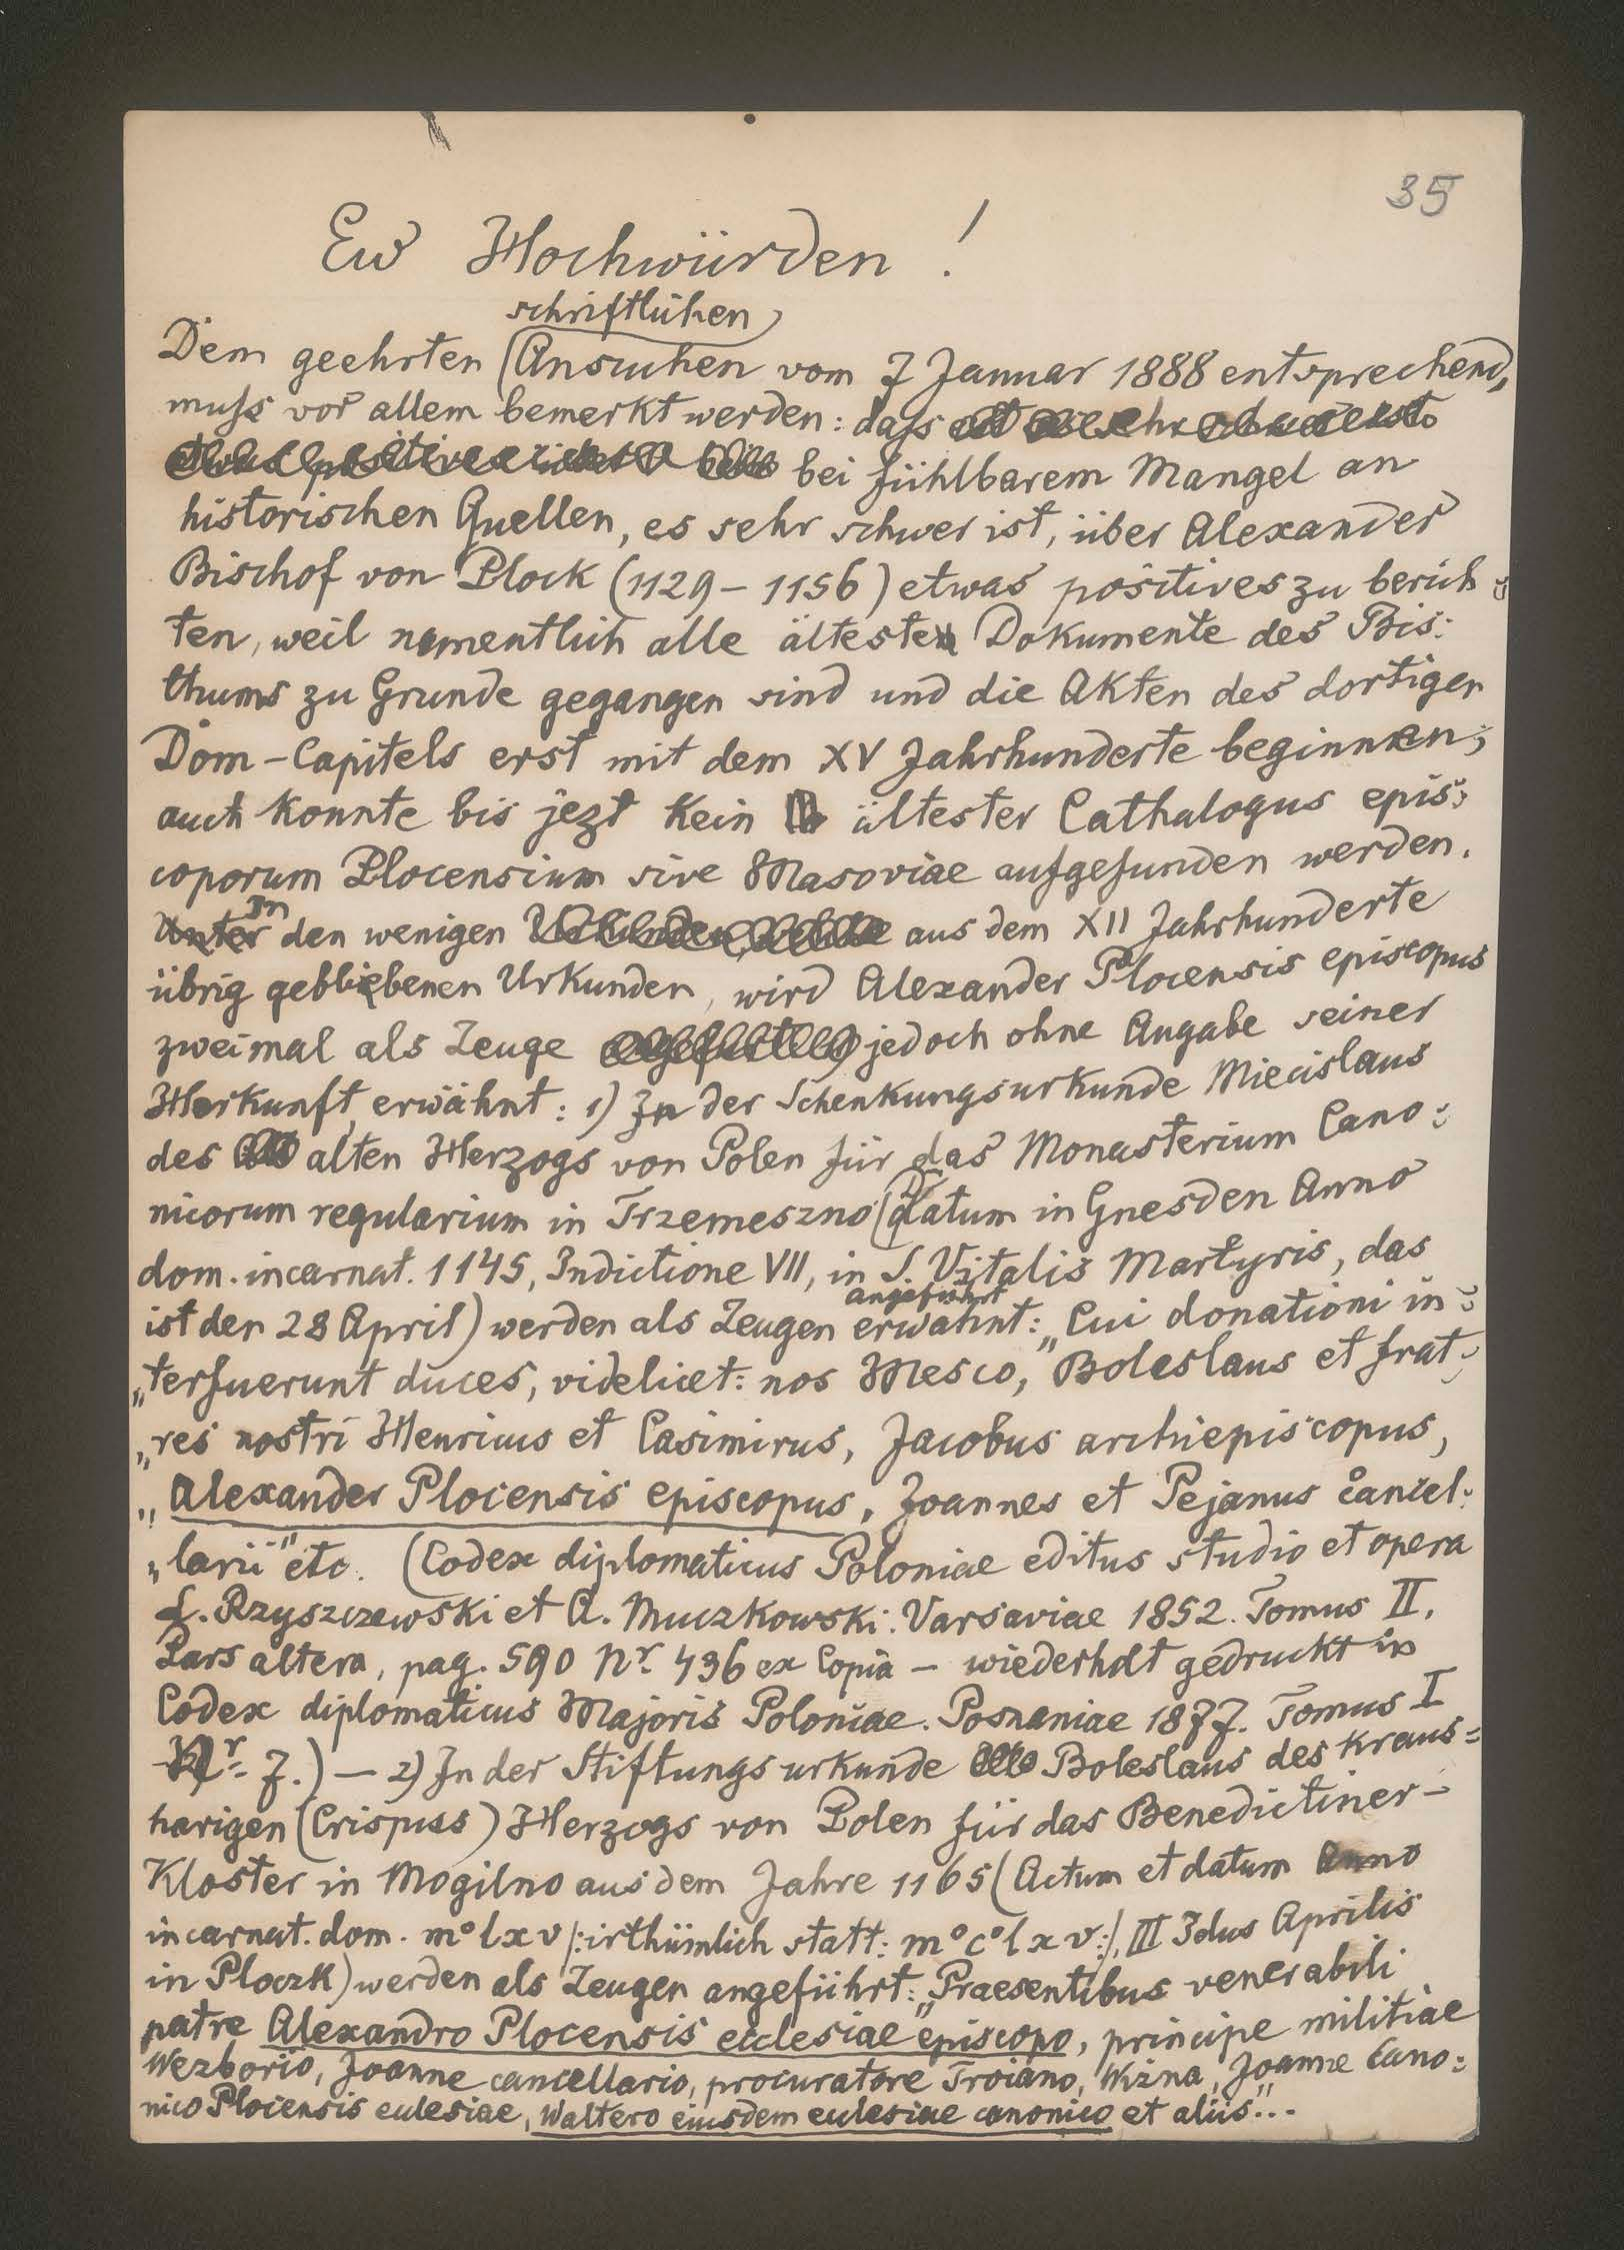 35
Ew Hochwürden!
schriftlichen
Dem geehrten Ansuchen vom 7 Januar 1888 entsprechend,
muss vor allem bemerkt werden: dass
bei fühlbarem Mangel an
historischen Quellen, es sehr schwer ist, über Alexander
Bischof von Plock (1129 – 1156) etwas positives zu berich:
ten, weil namentlich alle älteste Dokumente des Bis:
thums zu Grunde gegangen sind und die Akten des dortigen
Dom-Capitels erst mit dem XV Jahrhunderte beginnen;
auch konnte bis jezt kein ältester Cathalogus epis:
coporum Plocensium sive Masoviae aufgefunden werden.
Unter In den wenigen Urkunden, welche aus dem XII Jahrhunderte
übrig gebliebenen Urkunden, wird Alexander Plocensis episcopus
zweimal als Zeuge jedoch ohne Angabe seiner
Herkunft erwähnt: 1) In der Schenkungsurkunde Miecislaus
des alten Herzogs von Polen für das Monasterium Cano:
nicorum regularium in Trzemeszno (Datum in Gnesden Anno
dom. incarnat. 1145, Indictione VII, in S. Vitalis Martyris, das
angeführt
ist der 28 April) werden als Zeugen erwähnt: „Cui donationi in:
„terfuerunt duces, videlicet: nos Mesco, Boleslaus et frat:
„res nostri Henricus et Casimirus, Jacobus archiepiscopus,
„Alexander Plocensis episcopus, Joannes et Pejanus cancel:
„larii" etc. (Codex diplomaticus Poloniae editus studio et opera
L. Rzyszczewski et A. Muczkowski. Varsaviae 1852. Tomus II.
Pars altera, pag. 590 Nr. 436 ex Copia – wiederholt gedruckt in
Codex diplomaticus Majoris Poloniae. Posnaniae 1877. Tomus I
Nr. 7.) — 2) In der Stiftungsurkunde Boleslaus des Kraus=
harigen (Crispuss) Herzogs von Polen für das Benedictiner-
Kloster in Mogilno aus dem Jahre 1165 (Actum et datum Anno
incarnat. dom. m° l x v /: irthümlich statt: m° c° l x v :/, III Idus Aprilis
in Ploczk) werden als Zeugen angeführt: „Praesentibus venerabili
patre Alexandro Plocensis ecclesiae episcopo, principe militiae
Wezborio, Joanne cancellario, procuratore Troiano, Wizna, Joanne Cano:
nico Plocensis eclesiae, Waltero eiusdem eclesiae canonico et aliis"...